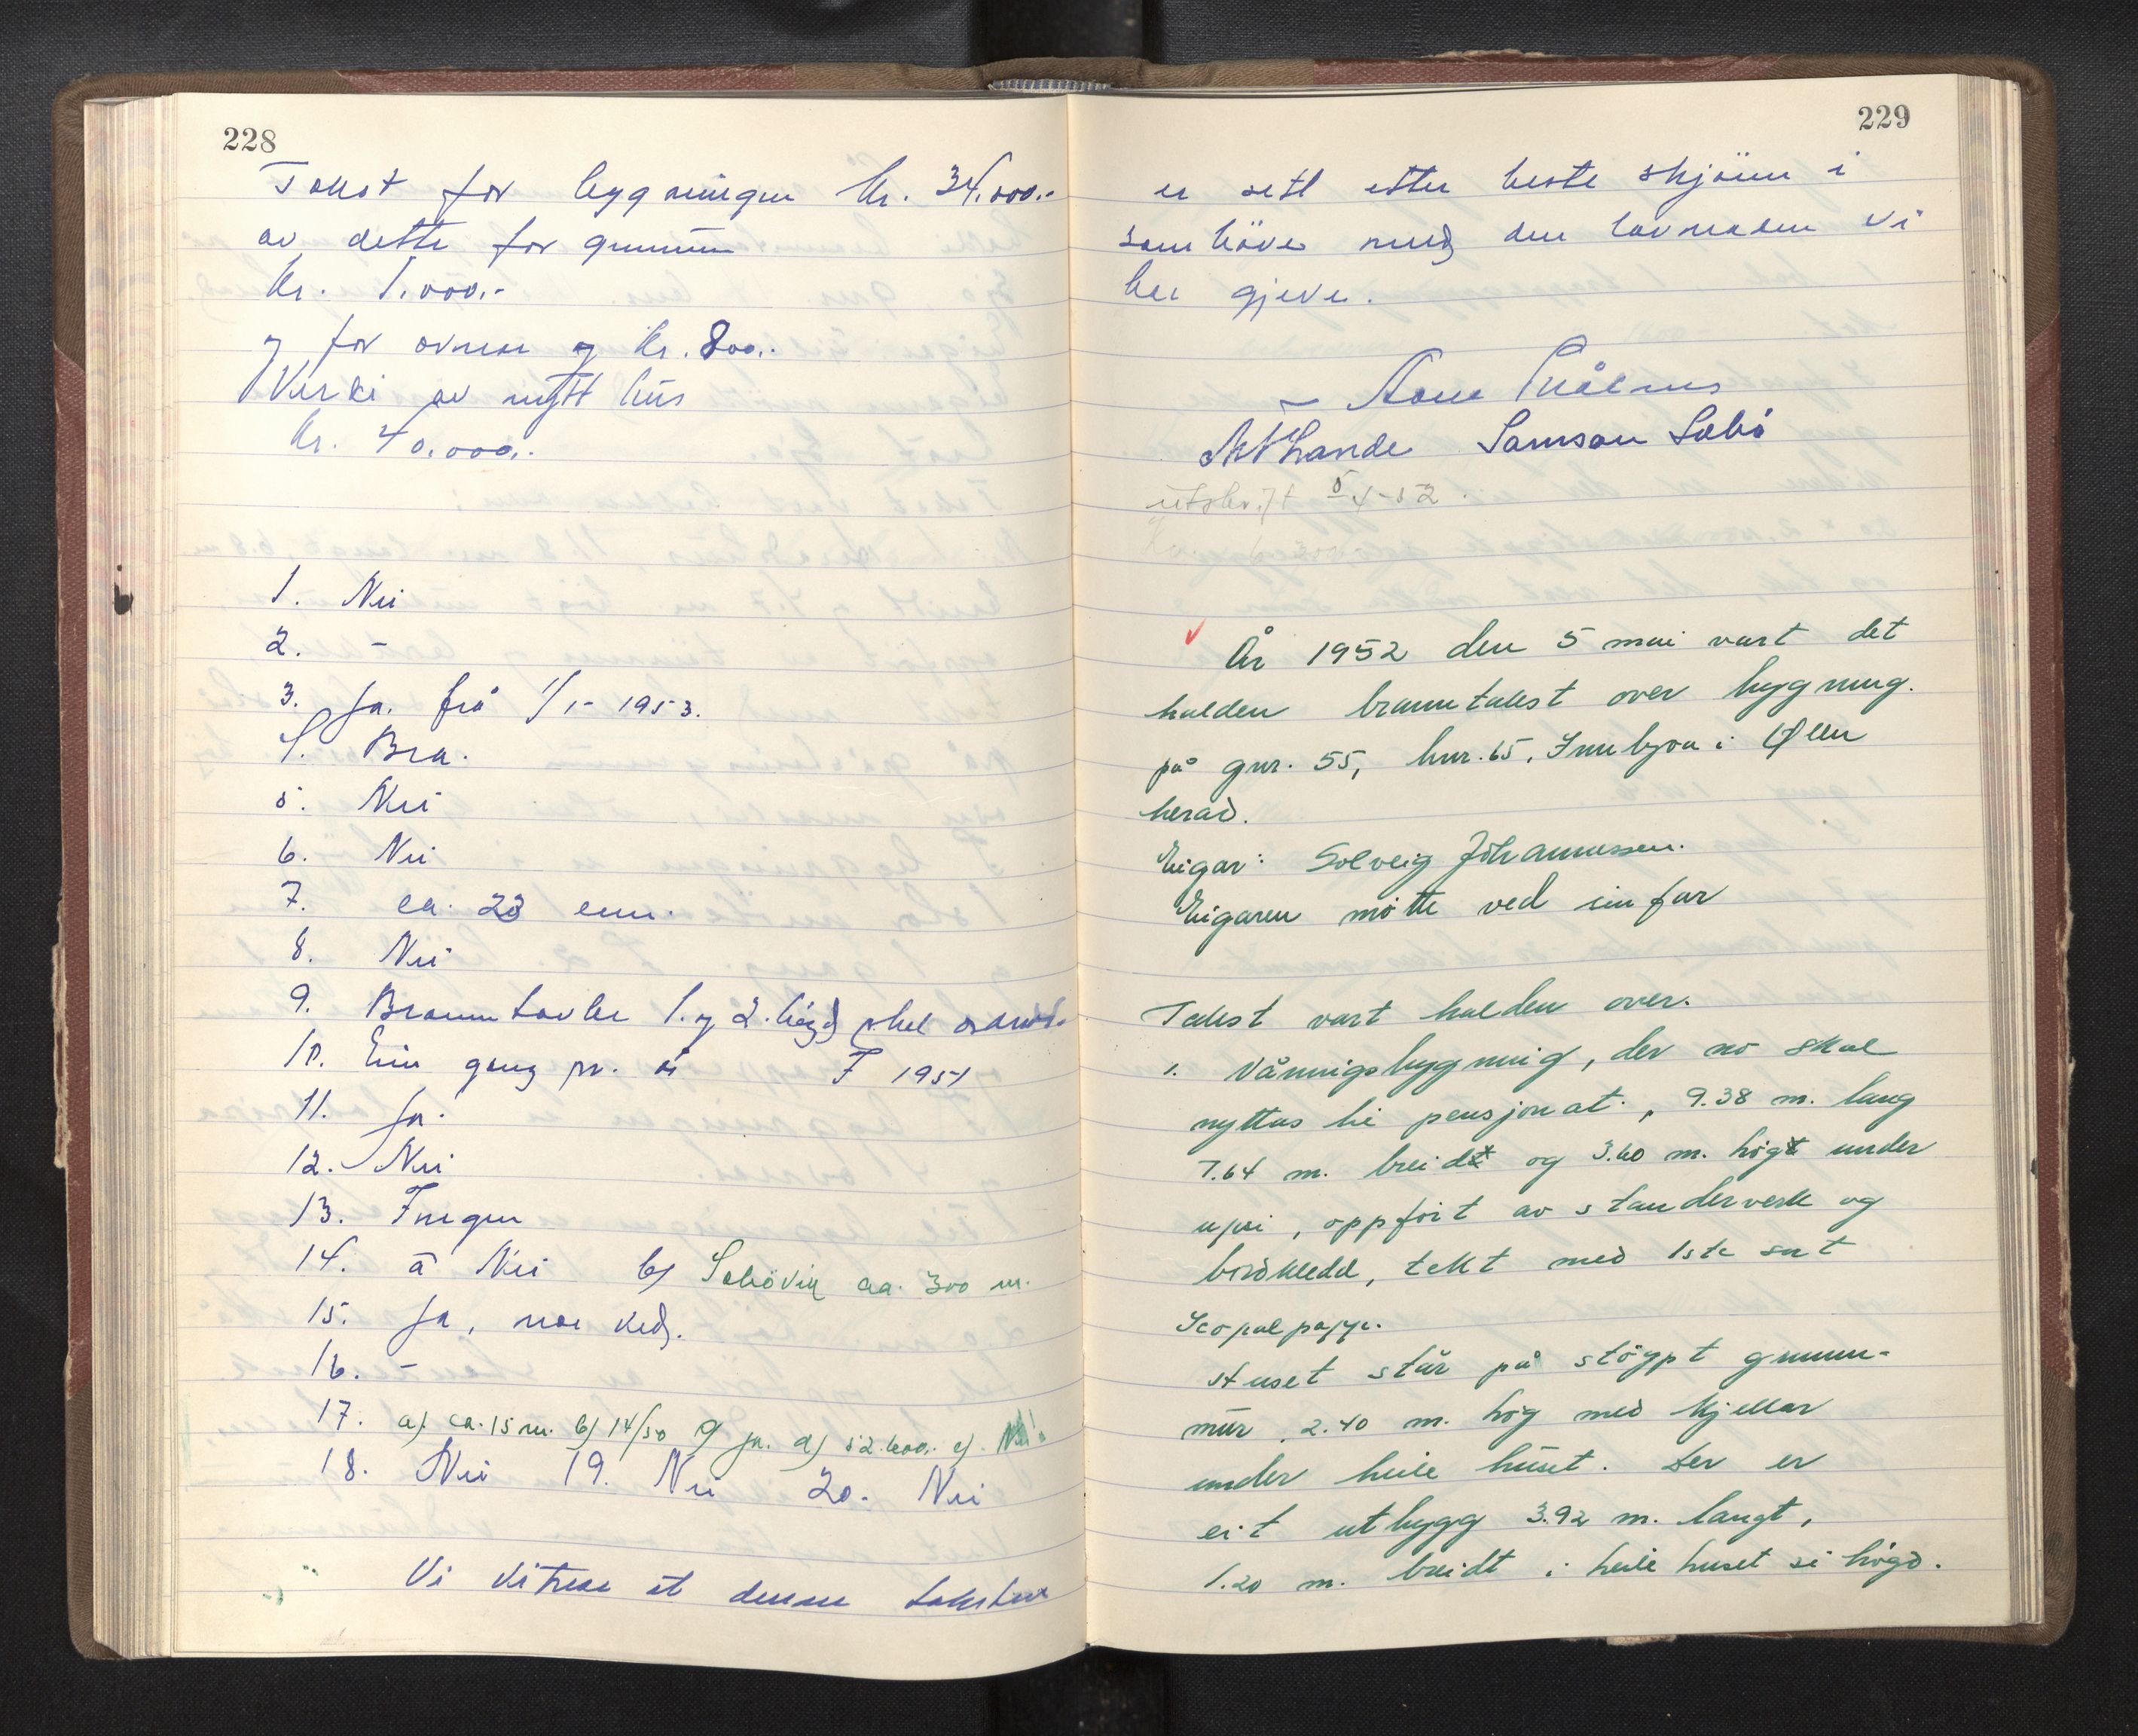 228
Takst for bygningen kr. 34.000.-
av dette for grunnmur
kr. 1.000.-
og for ovnene og kr. 800.-
Verdi av nytt hus
kr. 40.000.-
1. Nei
2. -
3. Ja. frå 1/1- 1953.
4. Bra.
5. Nei
6. Nei
7. ca. 23 cm.
8. Nei
9. Branntavler 1. og 2. høgd skal
10. Ein gang pr. år F 1951
11. Ja.
12. Nei
13. Ingen
14. a Nei b) Sæbövik ca. 300 m.
15. Ja, noe ved.
16. -
17. a) ca. 15 m. b) 14/50 c) ja. d) 52.600.- e) Nei
18. Nei 19. Nei 20. Nei
Vi vitnar at denne taksten
229
er sett etter beste skjönn i
samhöve med den lovnaden vi
her gjeve.
Samson Sæbö
utskrift 5/4-52.
År 1952 den 5 mai vart det
halden branntakst over bygning.
på gnr. 55, bnr. 65, Innbjoa i Ølen
herad.
Eigar: Solveig Johannessen.
Eigaren møtte ved sin far
Takst vart halden over.
1. Våningsbygning, der no skal
nyttas til pensjonat., 9.38 m. lang
7.64 m. breidt og 3.60 m. högt under
upsi, oppført av standerverk og
bordkledd, tekt med 1ste sort
Icopalpapp.
Huset står på støypt grunn-
mur, 2.40 m. høg med kjellar
under heile huset. Der er
eit utbygg 3.92 m. langt,
1.20 m. breidt i heile huset si høgd.